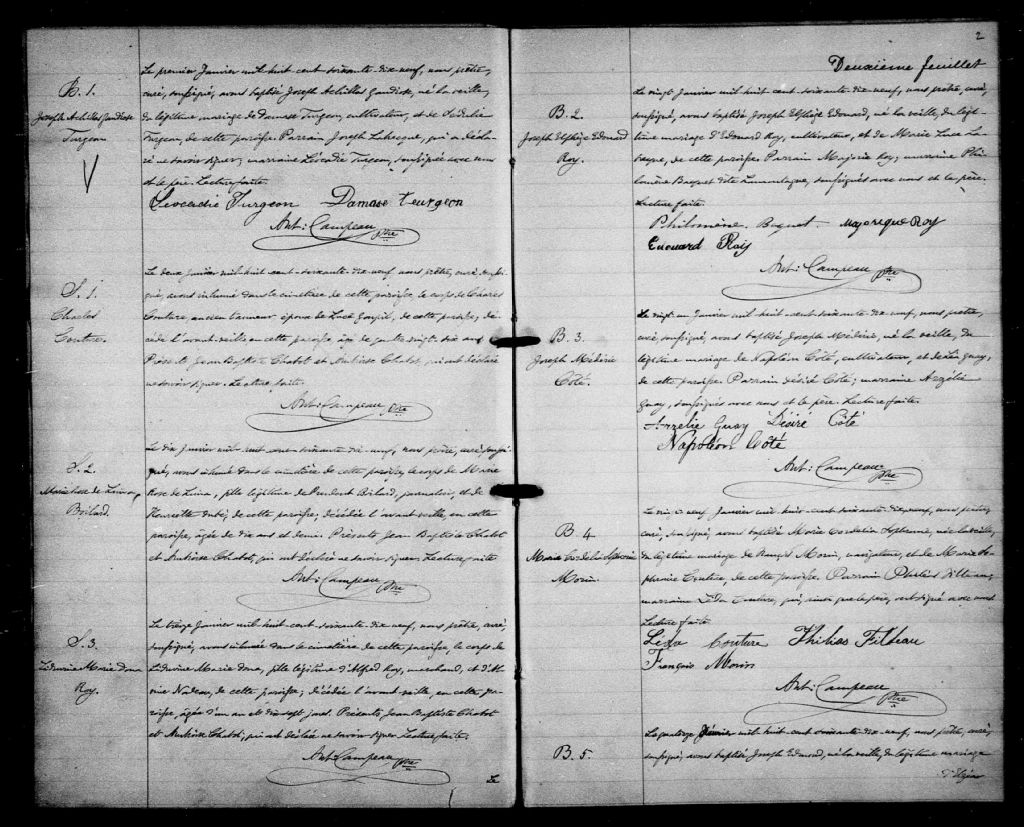 B. 1.
Joseph Achillas Gaudiose
Turgeon
Le premier Janvier mil huit cent soixante-dix-neuf, nous prêtre,
curé, soussigné, avons baptisé Joseph Achillas Gaudiose, né la veille,
du légitime mariage de Damase Turgeon, cultivateur, et de
Turgeon, de cette paroisse. Parrain Joseph qui a décla-
ré ne savoir signer; marraine Léocadie Turgeon, soussignée avec nous
et le père. Lecture faite.
Léocadie Turgeon Damase Teurgeon
Ant: Campeau ptre
S. 1.
Charles
Couture.
Le deux Janvier mil huit cent soixante-dix-neuf, nous prêtre, curé, soussi-
gné, avons inhumé dans le cimetière de cette paroisse, le corps de Charles
Couture ancien tanneur époux de Luce de cette paroisse; dé-
cédé l'avant-veille en cette paroisse âgé de quatre-vingt-dix ans
Présents Jean Baptiste Chabot et Ambroise Chabot, qui ont déclaré
ne savoir signer. Lecture faite.
Ant: Campeau ptre
S. 2.
Marie Rose de Lima
Boilard.
Le dix Janvier mil huit cent soixante-dix-neuf, nous prêtre, curé, soussi-
gné, avons inhumé dans le cimetière de cette paroisse, le corps de Marie
Rose de Lima, fille légitime de Prudent Boilard, journalier, et de
Henriette Dubé, de cette paroisse; décédée l'avant-veille, en cette
paroisse, âgée de dix ans et demi. Présents Jean Baptiste Chabot
et Ambroise Chabot, qui ont déclaré ne savoir signer. Lecture faite
Ant: Campeau ptre
S. 3.
Ludivine Marie Dona
Roy.
Le treize Janvier mil huit cent soixante-dix-neuf, nous prêtre, curé,
soussigné, avons inhumé dans le cimetière de cette paroisse, le corps de
Ludivine Marie Dona, fille légitime d'Alfred Roy, marchand, et d'
Nadeau, de cette paroisse; décédée l'avant-veille, en cette pa-
roisse, âgée d'un an et dix-sept jours. Présents Jean Baptiste Chabot
et Ambroise Chabot, qui ont déclaré ne savoir signer. Lecture faite.
Ant: Campeau ptre
Le
2
Deuxième feuillet
B. 2.
Joseph Elzéar Edouard
Roy.
Le vingt Janvier mil huit cent soixante-dix-neuf, nous prêtre, curé,
soussigné, avons baptisé Joseph Edouard, né la veille, du légi-
time mariage d'Edouard Roy, cultivateur, et de Marie Luce
de cette paroisse. Parrain Majorique Roy; marraine Phi-
lomène Baquet dite Lamontagne, soussignés avec nous et le père.
Lecture faite.
Philomène Baquet Majorique Roy
Edouard Roy
Ant: Campeau ptre
B. 3.
Joseph Médéric
Côté.
Le vingt-un Janvier mil huit cent soixante-dix-neuf, nous prêtre,
curé, soussigné, avons baptisé Joseph Médéric, né la veille, du
légitime mariage de Napoléon Côté, cultivateur, et de Léa Guay,
de cette paroisse. Parrain Désiré Côté; marraine Arzélie
Guay, soussignés avec nous et le père. Lecture faite.
Arzelie Guay Désiré Côté
Napoléon Côté
Ant: Campeau ptre
B. 4
Marie Cordelia Sephanie
Morin.
Le vingt-neuf Janvier mil huit cent soixante-dix-neuf, nous prêtre,
curé, soussigné, avons baptisé Marie Cordelia Sephanie, née la veille,
du légitime mariage de François Morin, navigateur, et de Marie Sé-
phanie Couture, de cette paroisse. Parrain Philéas Filteau;
marraine Léda Couture, qui, ainsi que le père, ont signé avec nous
Lecture faite
Léda Couture Philias Filteau
François Morin
Ant: Campeau ptre
B. 5.
Le quatorze Février mil huit cent soixante-dix-neuf, nous prêtre, curé,
soussigné, avons baptisé Joseph Edmond, né la veille, du légitime mariage
d'Elzéar